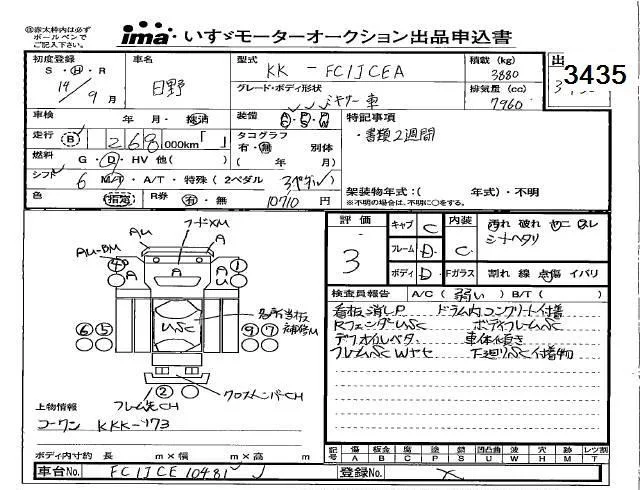 ※赤太枠内は必ず
ボールペンで
ご記入下さい。
ima いすゞモーターオークション出品申込書
初度登録 S・H・R 14年 9月
車名 日野
型式 KK - FC1JCEA
積載 (kg) 3880
出 3435
グレード・ボディ形状 ミキサー車
排気量 (cc) 7960
車検 年・月・抹消
装備 AC・PS・PW
特記事項
・書類2週間
走行 B 268 000km「 」
タコグラフ 有・無 別体 ( 年 月)
燃料 G・D・HV 他( )
シフト 6 M/T・A/T・特殊 (2ペダル 3ペダル)
架装物年式:( 年式)・不明
※不明の場合は、不明に○をする。
色 (指定)
R券 有・無 10710円
評価 3
キャブ C
内装 C
汚れ 破れ ヤニ スレ
シートヘタリ
フレーム D
ボディ D
Fガラス 割れ 線 点傷 イバリ
AU
フードXM
A
A
AU-BM
④
①
A
A
U
各所当板
補修M
USC
⑥⑤
⑨⑦
②
クロスメンバーCH
フレーム先CH
検査員報告 A/C (弱い) B/T ( )
看板消しP ドラム内コンクリート付着
RフェンダーUSC ボディフレームSC
デフオイルベタ 車体傾き
フレームSCWヤセ 下廻りSC付着物
上物情報
コーワン KKK-473
ボディ内寸約 長 m×幅 m×高 m
記号 傷A 板金B 腐C 塗P 錆S 凹U 凸凹曲 波W 穴H 跡M レンズ割T
車台No. FC1JCE10481
登録No. ×